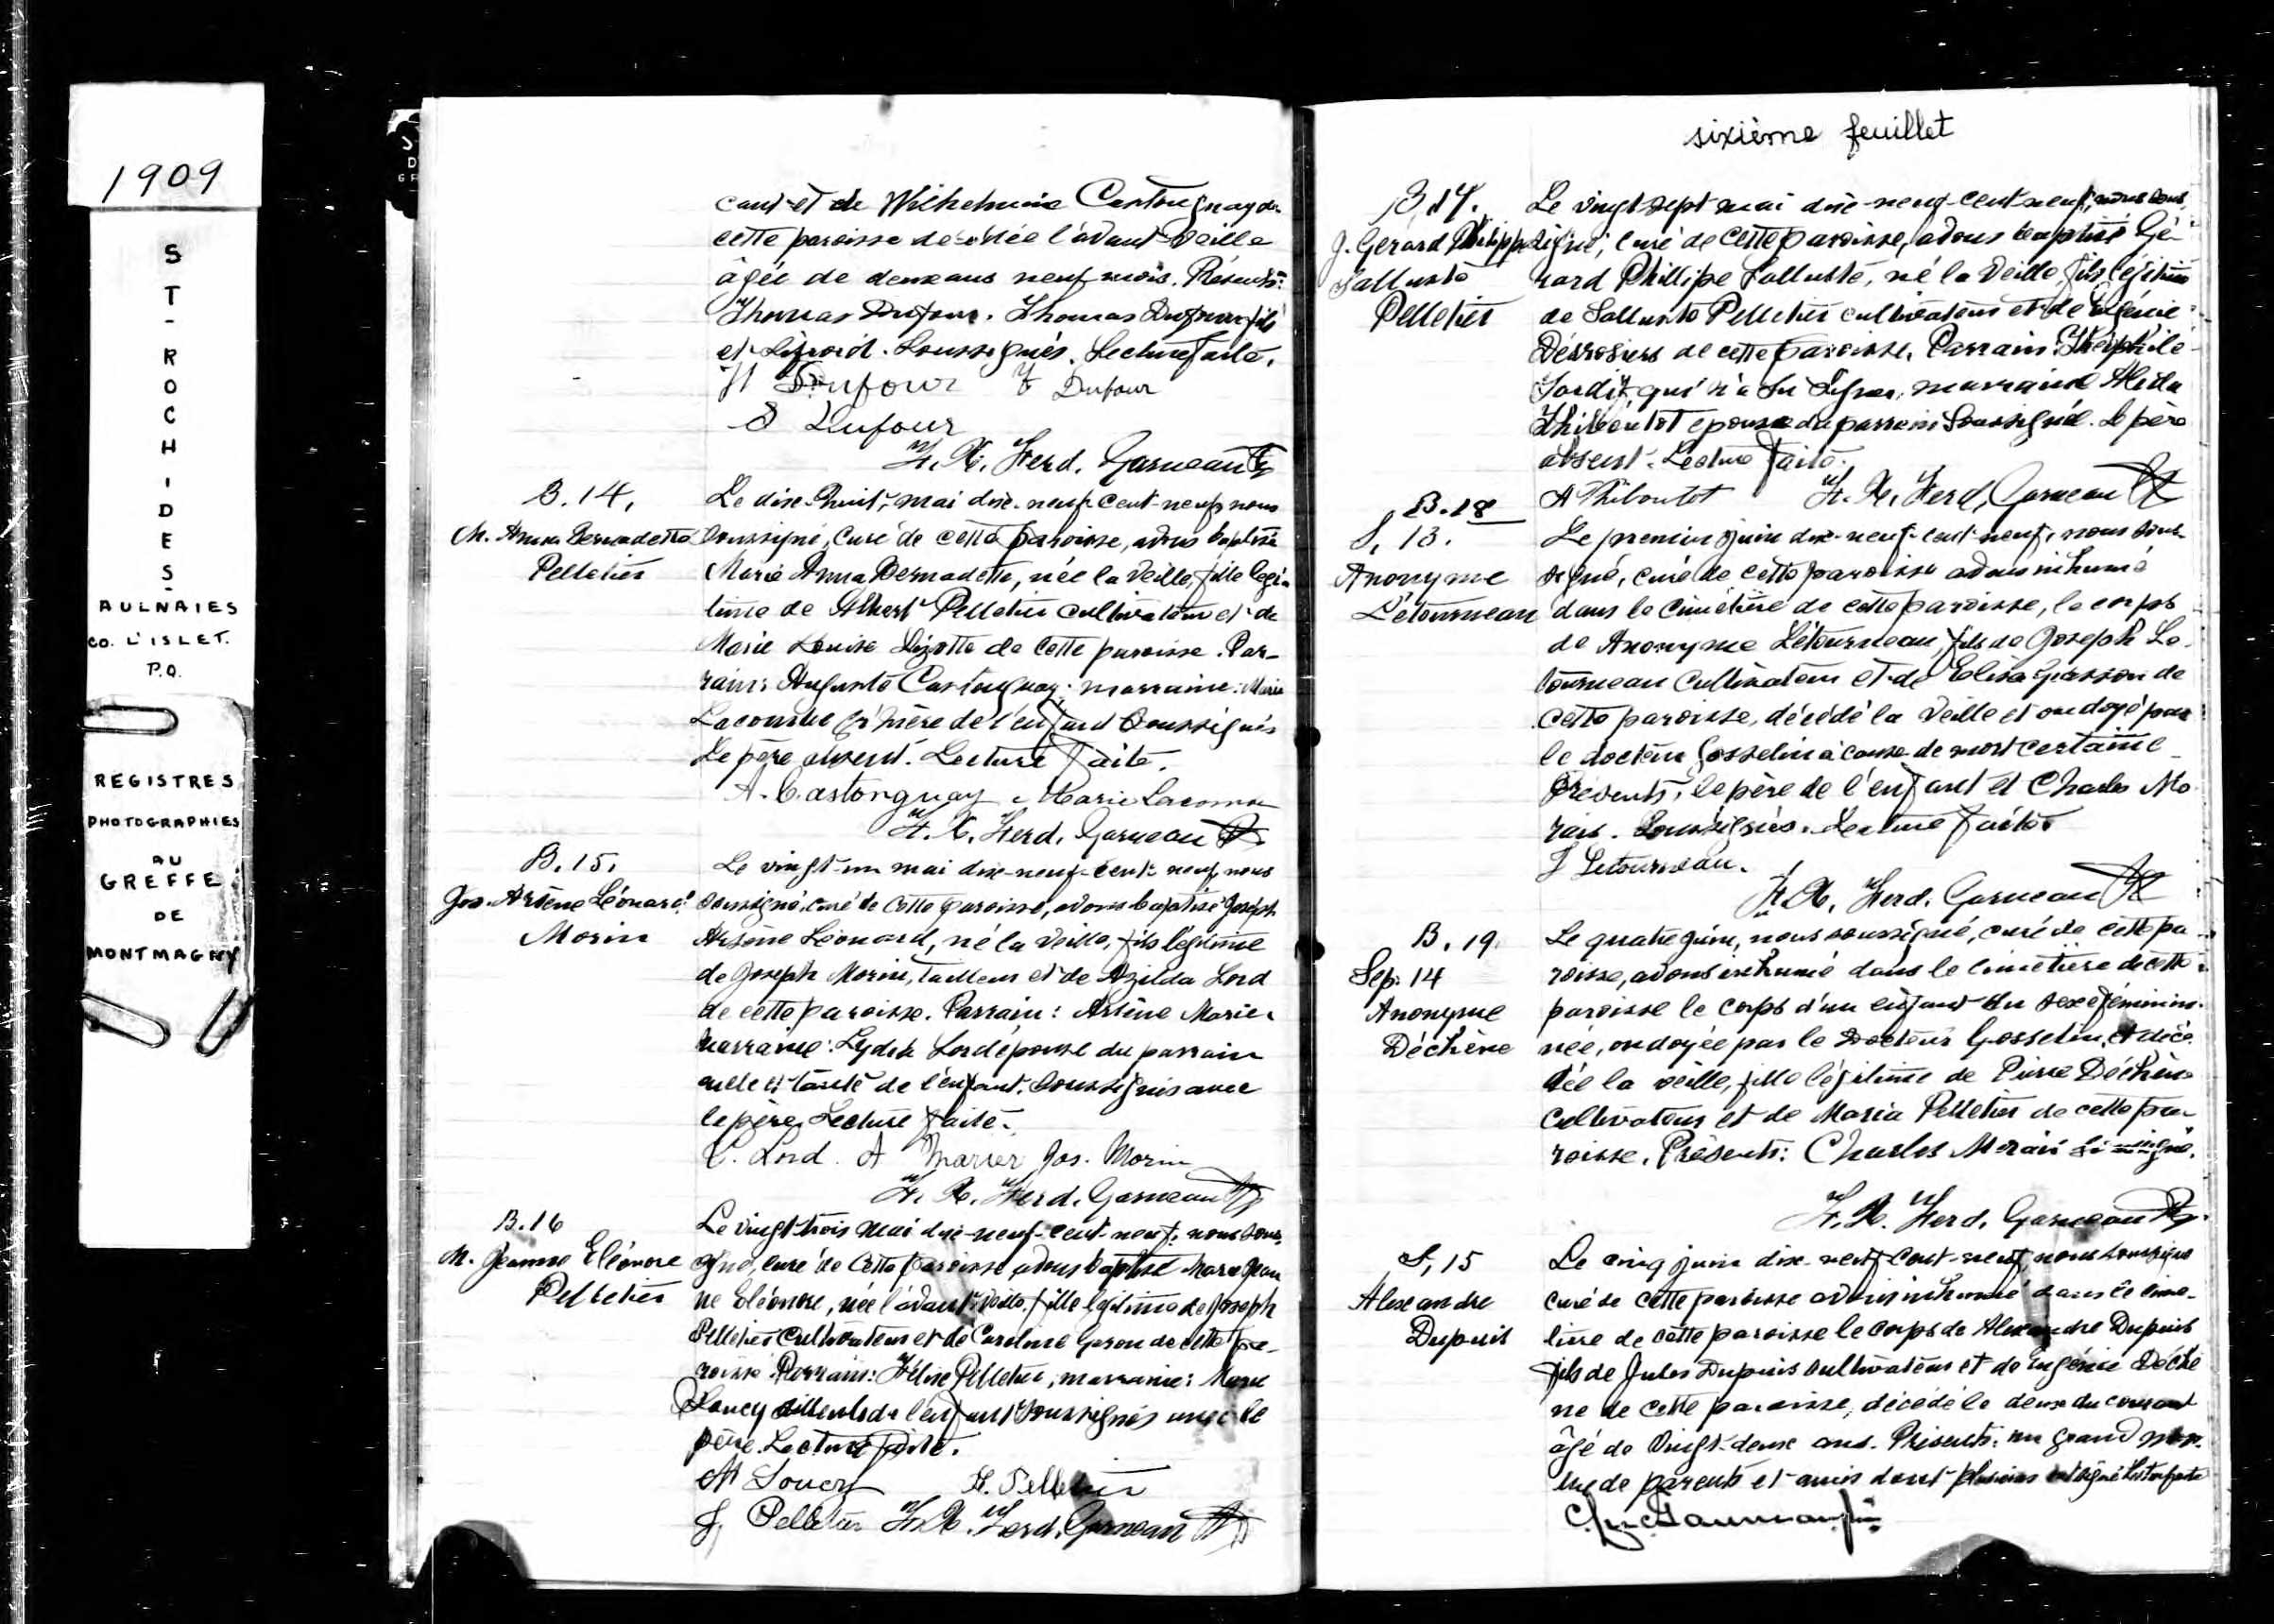 1909
S
T
-
R
O
C
H
-
D
E
S
-
AULNAIES
CO. L'ISLET.
P.Q.
REGISTRES
PHOTOGRAPHIÉS
AU
GREFFE
DE
MONTMAGNY
et de Wilhelmine Castonguay de
cette paroisse décédée l'avant-veille
âgée de deux ans neuf mois. Présents:
Thomas Dufour. Thomas Dufour fils
et Soussignés. Lecture faite.
Dufour T Dufour
S Dufour
F. X. Ferd. Garneau Ptre
B. 14.
M. Anna Bernadette
Pelletier
Le dix-huit mai dix-neuf-cent-neuf nous
soussigné, curé de cette paroisse, avons baptisé
Marie Anna Bernadette, née la veille, fille légi-
time de Albert Pelletier cultivateur et de
Marie Louise Lizotte de cette paroisse. Par-
rain: Auguste Castonguay; marraine: Marie
Lacombe de l'enfant soussignés
Le père absent. Lecture faite.
A. Castonguay Marie Lacombe
F. X. Ferd. Garneau Ptre
B. 15.
Jos. Arsène Léonard
Morin
Le vingt-un mai dix-neuf-cent-neuf nous
soussigné, curé de cette paroisse, avons baptisé Joseph
Arsène Léonard, né la veille, fils légitime
de Joseph Morin, tailleur et de Azilda Lord
de cette paroisse. Parrain: Arsène
marraine: Lydia Lord épouse du parrain
oncle et tante de l'enfant. Soussignés avec
le père. Lecture faite.
L. Lord. A Marier Jos. Morin
F. X. Ferd. Garneau Ptre
B. 16
M. Jeanne Eléonore
Pelletier
Le vingt-trois mai dix-neuf-cent-neuf, nous sous-
signé, curé de cette paroisse avons baptisé Marie Jean
ne Eléonore, née l'avant-veille, fille légitime de Joseph
Pelletier cultivateur et de Caroline de cette pa-
roisse. Parrain: Pelletier, marraine: Marie
Soucy de l'enfant soussignés avec le
père. Lecture faite.
M Soucy F. Pelletier
J. Pelletier F. X. Ferd. Garneau Ptre
sixième feuillet
B. 17.
J. Gérard Philippe
Salluste
Pelletier
Le vingt-sept mai dix-neuf-cent-neuf, nous sous
signé, curé de cette paroisse, avons baptisé Gé-
rard Phillipe Salluste, né la veille, fils légitime
de Salluste Pelletier cultivateur et de Eugénie
Désrosiers de cette paroisse. Parrain: Théophile
qui n'a su signer, marraine Aléda
Thiboutot épouse du parrain soussignée. Le père
absent. Lecture faite.
A Thiboutot F. X. Ferd. Garneau Ptre
B. 18
S. 13.
Anonyme
Létourneau
Le premier juin dix-neuf-cent-neuf, nous sous-
signé, curé de cette paroisse avons inhumé
dans le cimetière de cette paroisse, le corps
de Anonyme Létourneau, fils de Joseph Lé-
tourneau cultivateur et de Elisa Gasson de
cette paroisse, décédé la veille et ondoyé par
le docteur Gosselin à cause de mort certaine
Présents, le père de l'enfant et Charles Mo
rais. Soussignés. Lecture faite.
J Letourneau.
F. X. Ferd. Garneau Ptre
B. 19.
Sep. 14
Anonyme
Déchène
Le quatre juin, nous soussigné, curé de cette pa
roisse, avons inhumé dans le cimetière de cette
paroisse le corps d'un enfant du sexe féminin
née, ondoyée par le Docteur Gosselin, et décé
dée la veille, fille légitime de Pierre Déchène
cultivateur et de Maria Pelletier de cette pa-
roisse. Présents: Charles Morais
F. X. Ferd. Garneau Ptre
S, 15
Alexandre
Dupuis
Le cinq juin dix-neuf-cent-neuf, nous soussigné
curé de cette paroisse avons inhumé dans le cime-
tière de cette paroisse le corps de Alexandre Dupuis
fils de Jules Dupuis cultivateur et de Eugénie Déchê
ne de cette paroisse, décédé le deux du courant
âgé de vingt-deux ans. Présents: un grand nom-
bre de parents et amis dont plusieurs ont signé